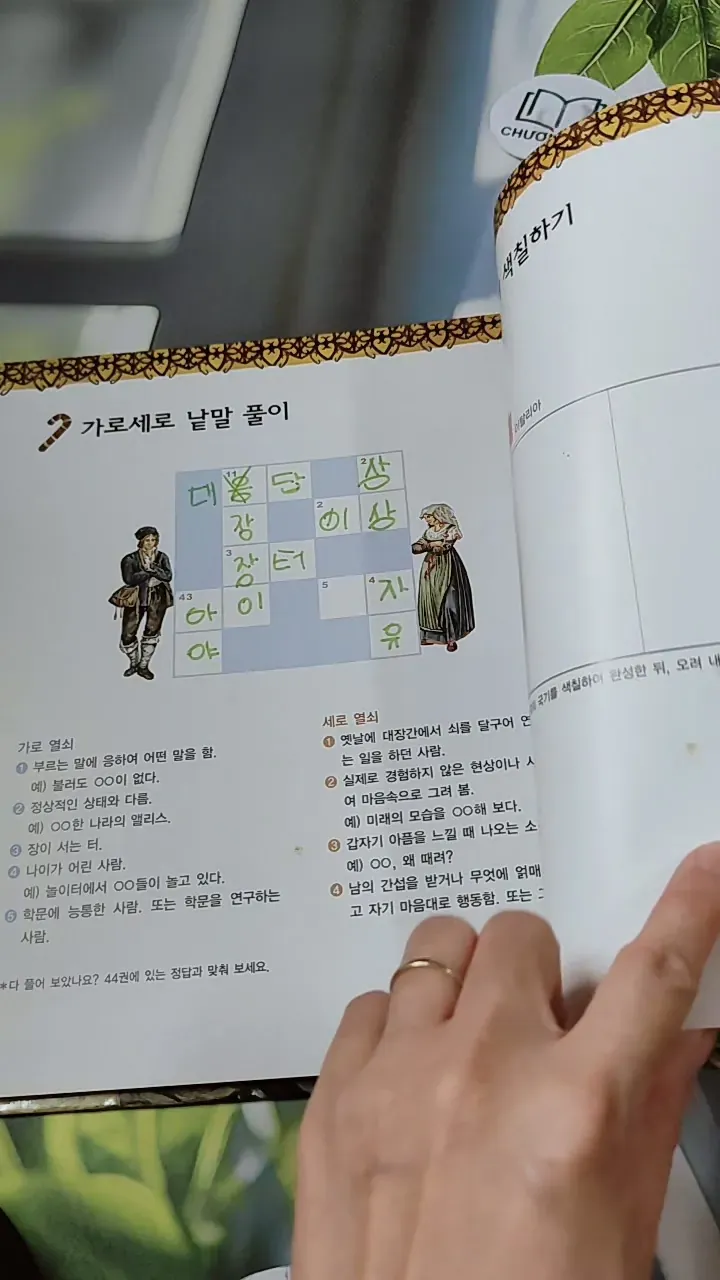 CHƯƠ
색칠하기
이탈리아
가로세로 낱말 풀이
대 단 상
장 이 상
장 터
아 이 자
야 유
가로 열쇠
1 부르는 말에 응하여 어떤 말을 함.
예) 불러도 ○○이 없다.
2 정상적인 상태와 다름.
예) ○○한 나라의 앨리스.
3 장이 서는 터.
4 나이가 어린 사람.
예) 놀이터에서 ○○들이 놀고 있다.
5 학문에 능통한 사람. 또는 학문을 연구하는
사람.
*다 풀어 보았나요? 44권에 있는 정답과 맞춰 보세요.
세로 열쇠
1 옛날에 대장간에서 쇠를 달구어 연
는 일을 하던 사람.
2 실제로 경험하지 않은 현상이나 사
여 마음속으로 그려 봄.
예) 미래의 모습을 ○○해 보다.
3 갑자기 아픔을 느낄 때 나오는 소
예) ○○, 왜 때려?
4 남의 간섭을 받거나 무엇에 얽매
고 자기 마음대로 행동함. 또는
국기를 색칠하여 완성한 뒤, 오려 내